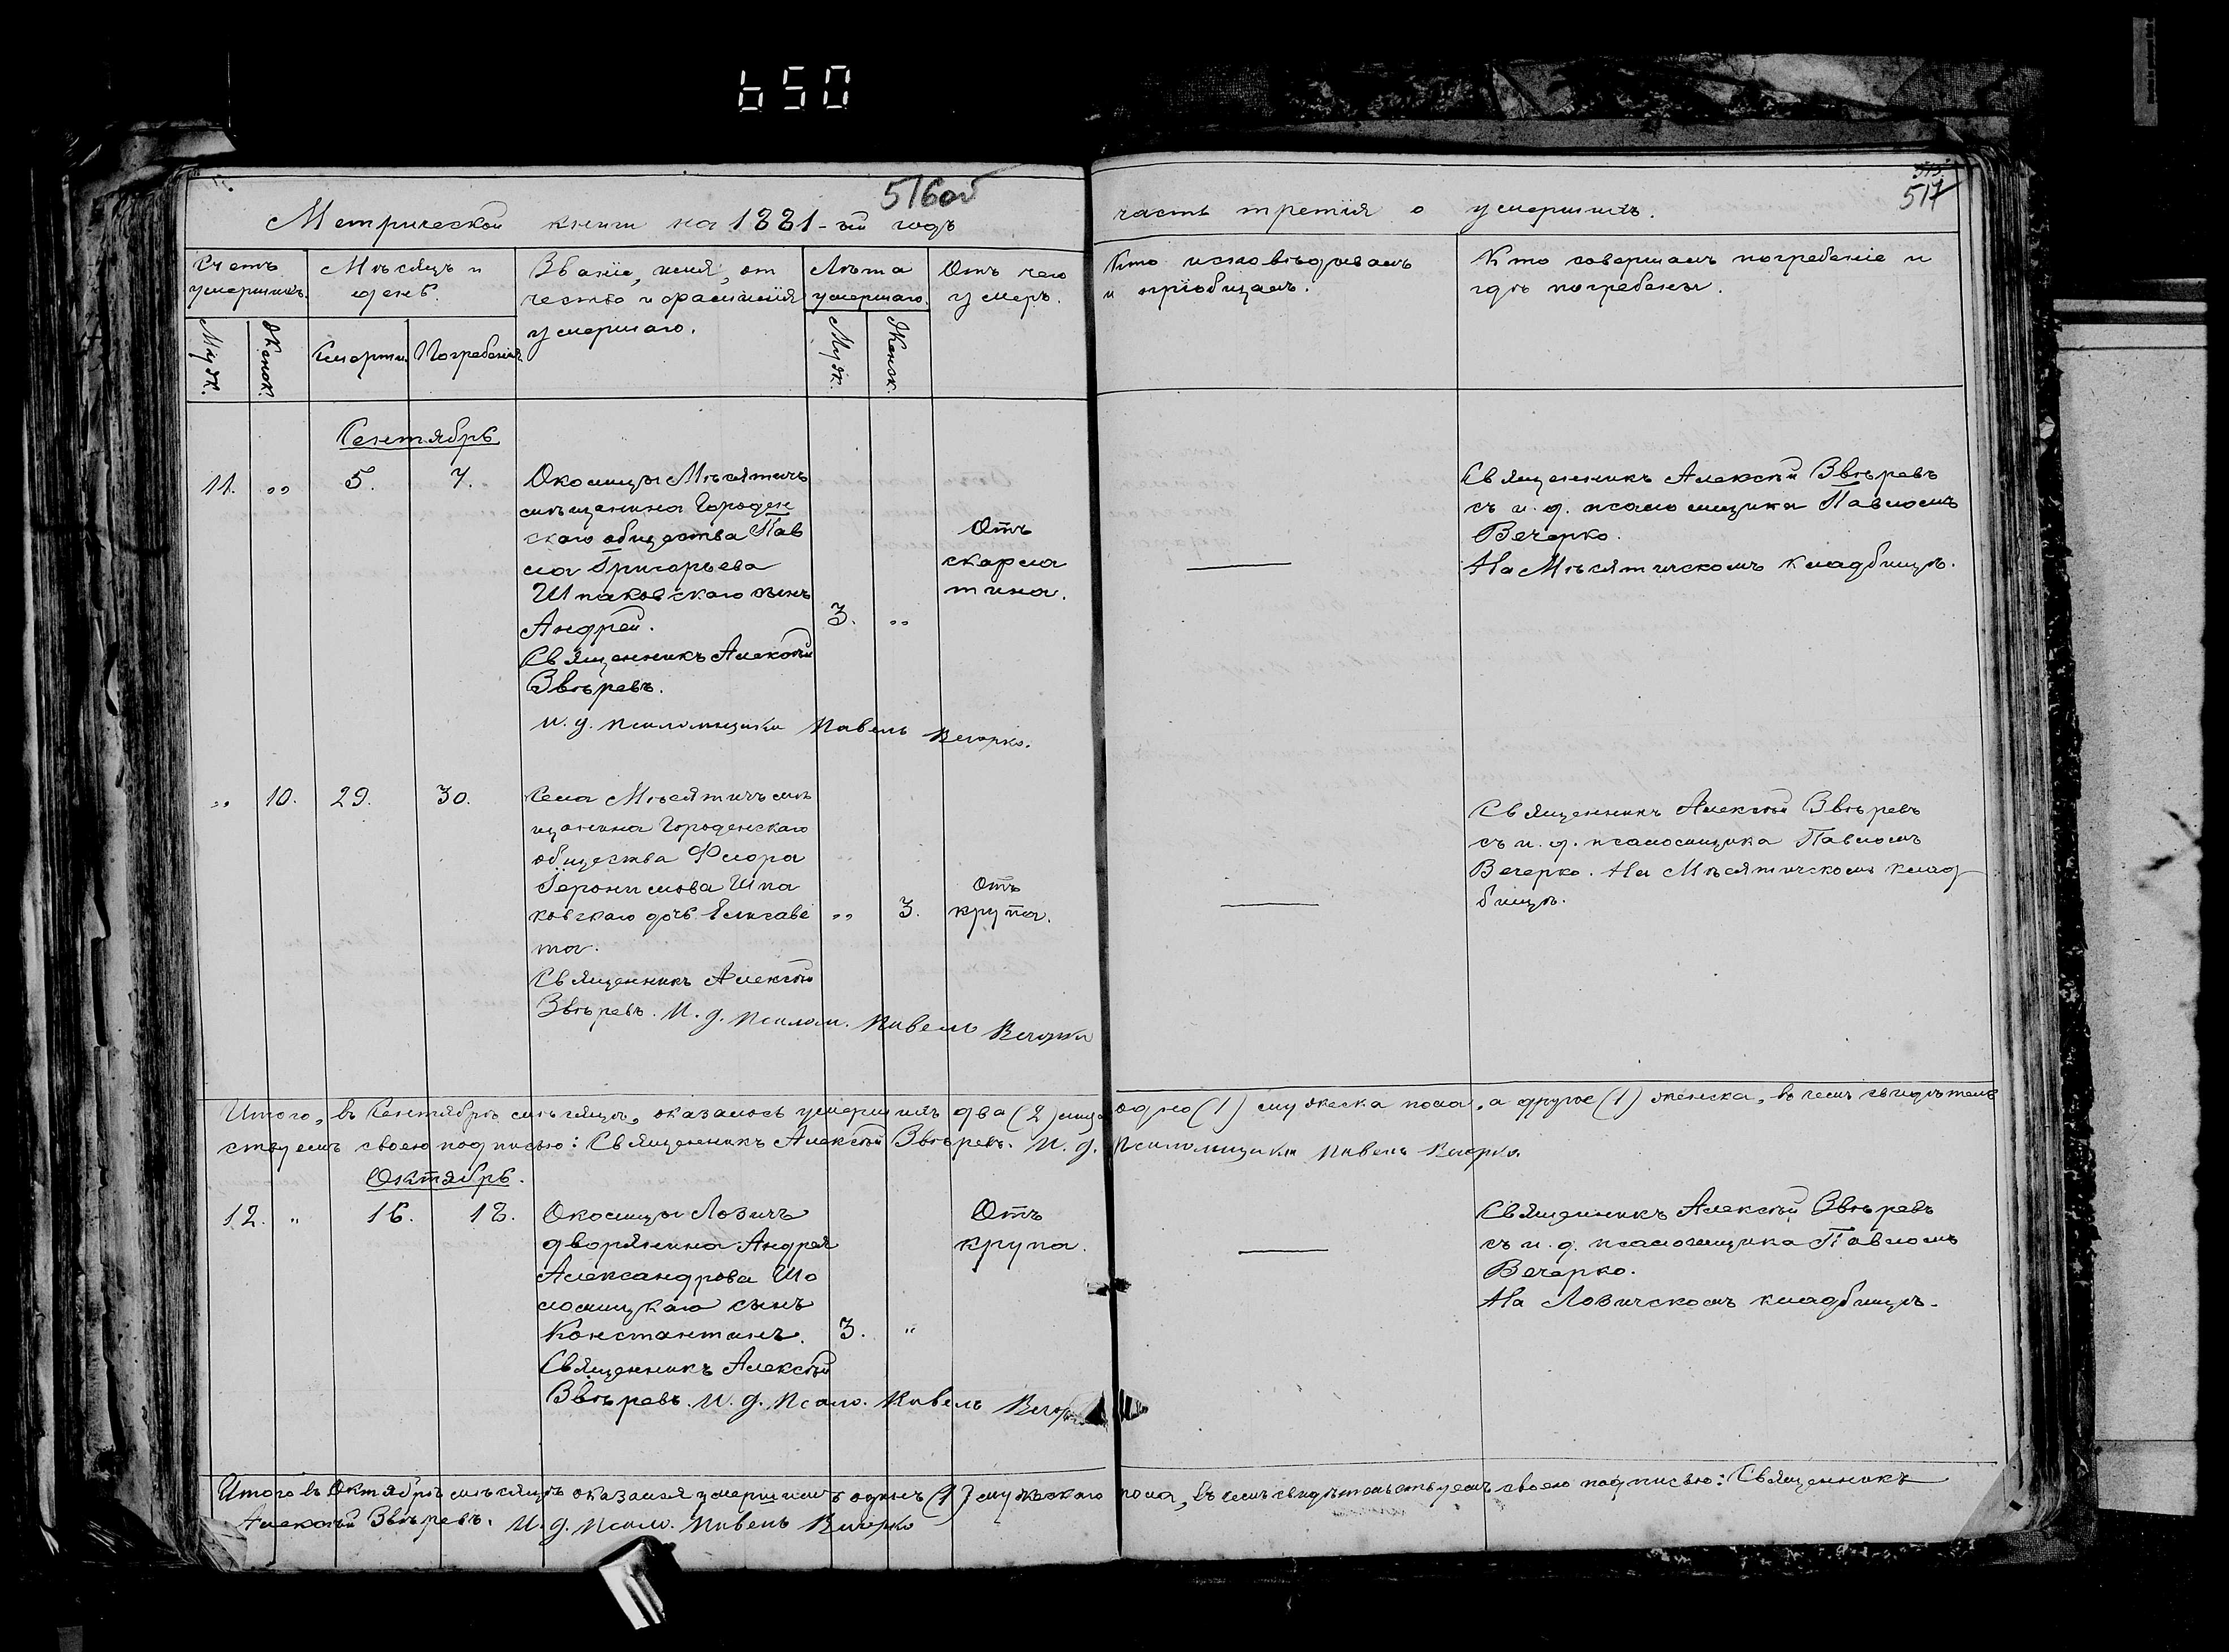 650
516об
Метрической книги на 1881-ый годъ
часть третія о умершихъ.
515.
517
Счетъ умершихъ.
Мѣсяцъ и день.
Званіе, имя, отчество и фамилія умершаго.
Лѣта умершаго.
Отъ чего умеръ.
Кто исповѣдывалъ и пріобщалъ.
Кто совершалъ погребеніе и гдѣ погребены.
Муж.
Женск.
Смерти
Погребенія.
Муж.
Женск.
Сентябрь
11. „ 5. 7.
Околицы Мѣсятичъ
мѣщанина Городен
скаго общества Пав
ла Григорьева
Шпаковскаго сынъ
Андрей.
3. „
Отъ
скарла
тина.
Священникъ Алексѣй
Звѣревъ.
И. д. псаломщика Павелъ Вечерко.
Священникъ Алексѣй Звѣревъ
съ и. д. псаломщика Павломъ
Вечерко.
На Мѣсятичскомъ кладбищѣ.
„ 10. 29. 30.
Села Мѣсятичъ мѣ
щанина Городенскаго
общества Флора
Іеронимова Шпа
ковскаго дочь Елисаве
та.
„ 3.
Отъ
крупа.
Священникъ Алексѣй
Звѣревъ. И. д. Псалом. Павелъ Вечерко
Священникъ Алексѣй Звѣревъ
съ и. д. псаломщика Павломъ
Вечерко. На Мѣсятичскомъ клад
бищѣ.
Итого, въ Сентябрѣ мѣсяцѣ, оказалось умершихъ два (2) лица одно (1) мужеска пола, а другое (1) женска, въ чемъ свидѣтель
ствуемъ своею подписью: Священникъ Алексѣй Звѣревъ. И. д. Псаломщика Павелъ Вечерко.
Октябрь.
12. „ 16. 18.
Околицы Лозичъ
дворянина Андрея
Александрова Шо
ломицкаго сынъ
Константинъ.
3. „
Отъ
крупа.
Священникъ Алексѣй
Звѣревъ. И. д. Псало. Павелъ Вечер
Священникъ Алексѣй Звѣревъ
съ и. д. псаломщика Павломъ
Вечерко.
На Лозичскомъ кладбищѣ.
Итого въ Октябрѣ мѣсяцѣ оказался умершимъ одинъ (1) мужскаго пола, въ чемъ свидѣтельствуемъ своею подписью: Священникъ
Алексѣй Звѣревъ. И. д. Псало. Павелъ Вечерко